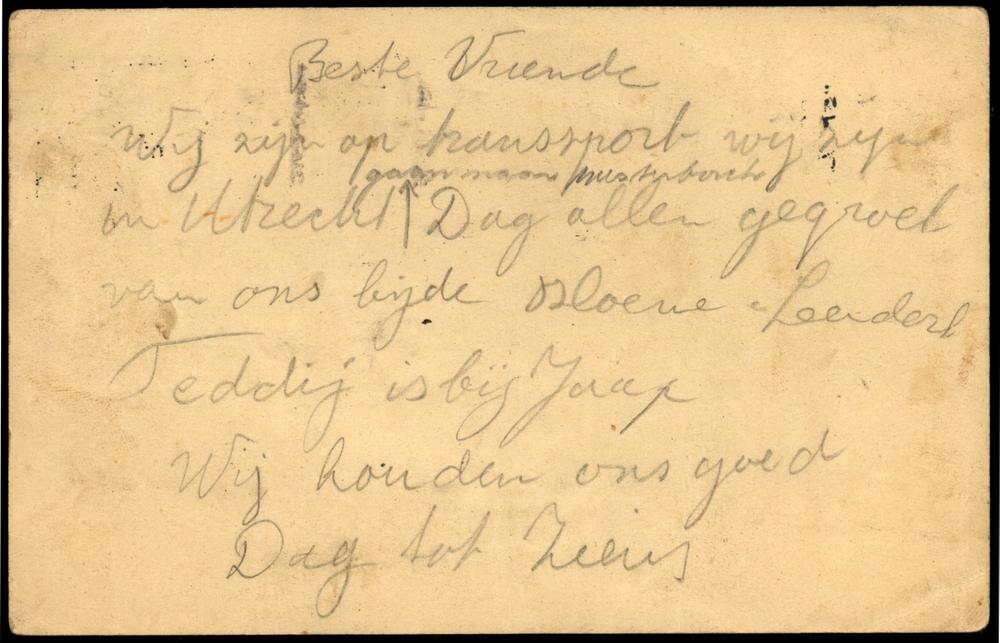 Beste Vriende
Wij zijn op transsport wij zijn
gaan naar
in Utrecht Dag allen gegroet
van ons bijde Bloeme Leendert
Teddij is bij Jaap
Wij houden ons goed
Dag tot Ziens